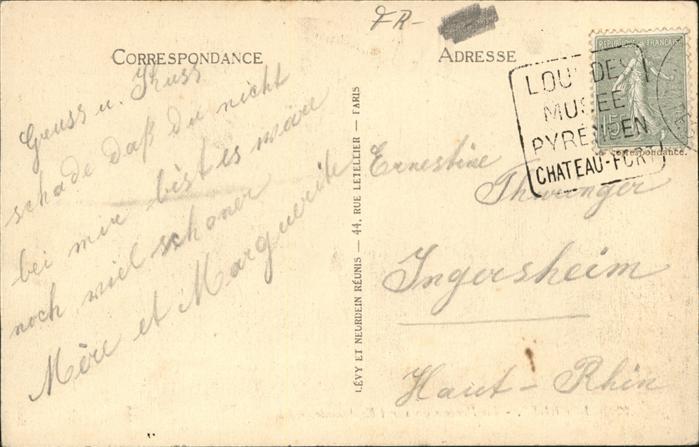 FR-
CORRESPONDANCE
Gruss u. Kuss
schade daß du nicht
bei mir bist es wäre
noch viel schöner
Mère et Marguerite
LÉVY ET NEURDEIN RÉUNIS — 44, RUE LETELLIER — PARIS
ADRESSE
RÉPUBLIQUE FRANÇAISE
15
LOURDES
MUSÉE
PYRÉNÉEN
CHATEAU-FORT
correspondance.
Ernestine
Thuringer
Ingersheim
Haut-Rhin